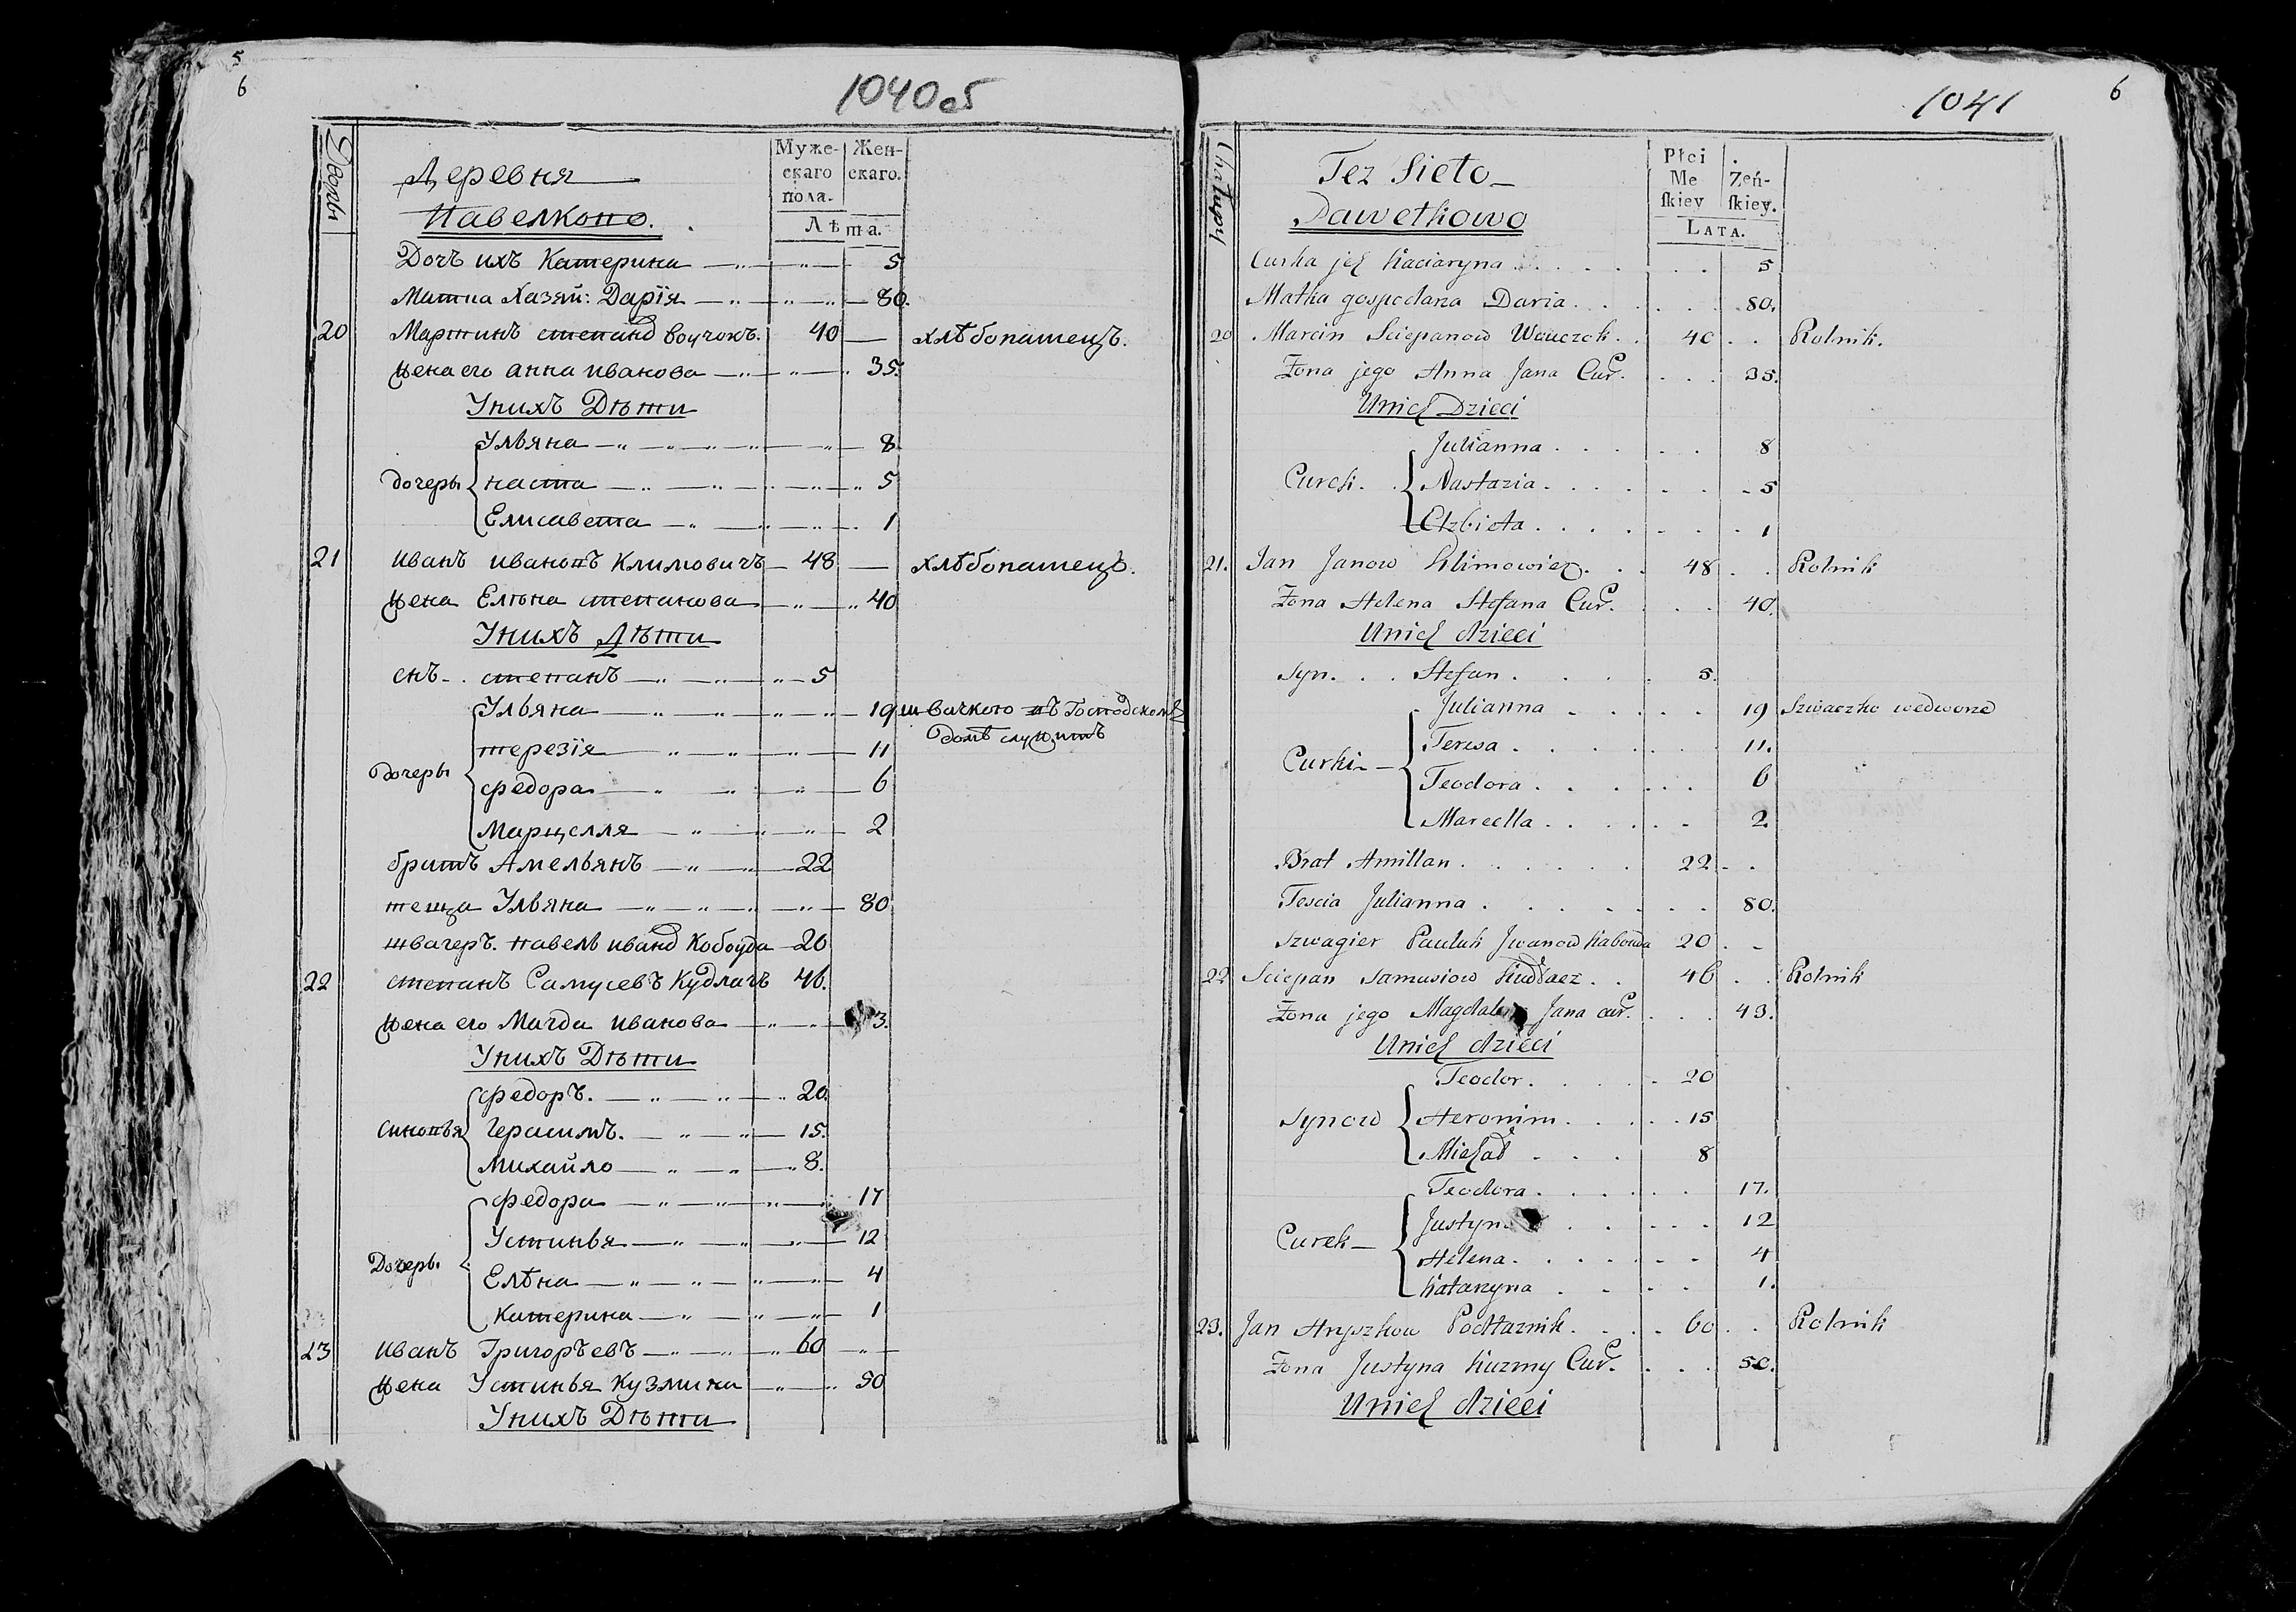 5
6
1040об
Дворы
Деревня
Павелково.
Муже-
скаго
пола.
Жен-
скаго.
Лѣта.
Дочъ ихъ Катерина 5
Матка Хазяй: Дарїя 80.
20 Мартинъ степанд воучокъ. 40 хлѣбопашецъ.
жена его анна иванова 35.
Унихъ Дѣти
дочеры
Ульяна 8
наста 5
Елисавета 1
21 иванъ ивановъ Климовичъ 48 хлѣбопашецъ.
жена Елѣна степанова 40
Унихъ Дѣти
снъ степанъ 5
Дочеры
Ульяна 19 швачкою въ Господскомъ
домѣ служитъ
терезїя 11
федора 6
Марцелля 2
братъ Амельянъ 22
теща Ульяна 80
швагеръ. павелъ иванд Кобоуда 20
22 степанъ Самусевъ Кудлачъ 46.
жена его Магда иванова 3.
Унихъ Дѣти
синовья
федоръ. 20.
Герасимъ. 15.
Михайло 8.
Дочеры
федора 17
Устинья 12
Елѣна 4
Катерина 1
23 иванъ Григоръевъ 60
жена Устинья Кузмина 50
Унихъ Дѣти
6
1041
Chałupy
Tez Sieło
Pawełkowo
Płci
Me
ſkiey
Żeń-
ſkiey.
LATA.
Curka jch Kaciaryna 5
Matka gospodarza Daria 80.
20 Marcin Sciepanow Wouczok 40 Rolnik.
Żona jego Anna Jana Cur. 35.
Unich Dzieci
Curek
Julianna 8
Nastazia 5
Elzbieta 1
21. Jan Janow Klimowicz 48 Rolnik
Żona Helena Stefana Cur. 40.
Unich dzieci
Syn Stefan 5.
Curki
Julianna 19 Szwaczko wedworze
Teresa 11.
Teodora 6
Marcella 2.
Brat Amillan 22
Tescia Julianna 80.
Szwagier Pauluk Jwanow Kabouda 20
22 Sciepan Samusiow Kudłacz 46 Rolnik
Żona jego Magdalena Jana cur. 43.
Unich dzieci
Synow
Teodor 20
Heronim 15
Michał 8
Curek
Teodora 17.
Justyna 12
Helena 4
Katarzyna 1.
23. Jan Hryszkow Podłaznik 60 Rolnik
Żona Justyna Kuzmy Cur. 50.
Unich dzieci